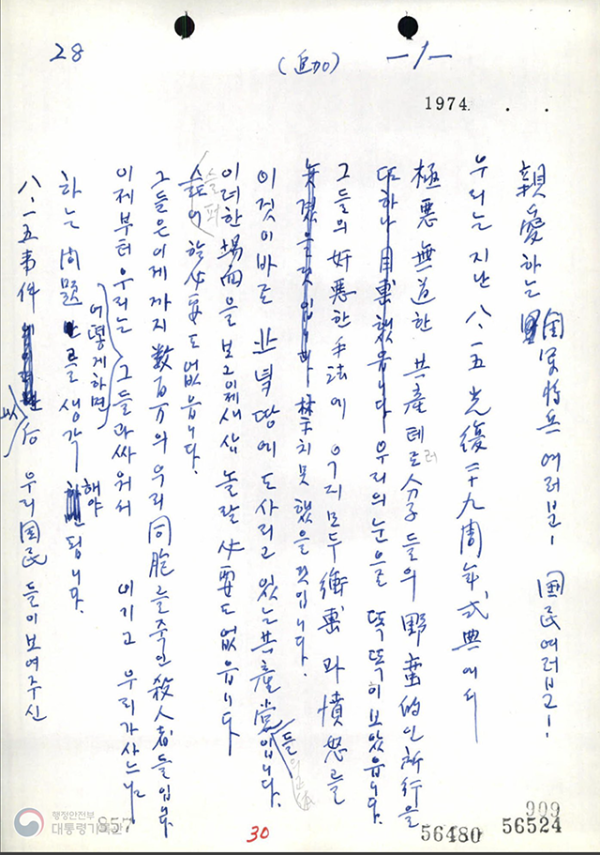 28
(追加)
—1—
1974 . .
親愛하는 國軍將兵 여러분! 國民여러분!
우리는 지난 八.一五 光復二十九周年式典에서
極悪無道한 共産테로分子들의 野蛮的인 所行을
또하나 目擊했읍니다 우리의 눈으로 똑똑히 보았읍니다.
그들의 奸悪한 手法에 우리모두 衝擊과 憤怒를
禁치못했을것입니다.
이것이 바로 北녘땅에 도사리고 있는 共産党입니다.
들
이러한 場面을 보고 이제새삼 놀랄 必要도 없읍니다
슬퍼할 必要도 없읍니다.
그들은 이제까지 數百万의 우리 同胞를 죽인 殺人者들입니다.
이제부터 우리는 그들과 싸워서 이기고 우리가 사느냐
어떻게하면
하는 問題를 생각해야 됩니다.
八.一五事件 后 우리國民들이 보여주신
행정안전부
대통령기록관
857
30
909
56480
56524